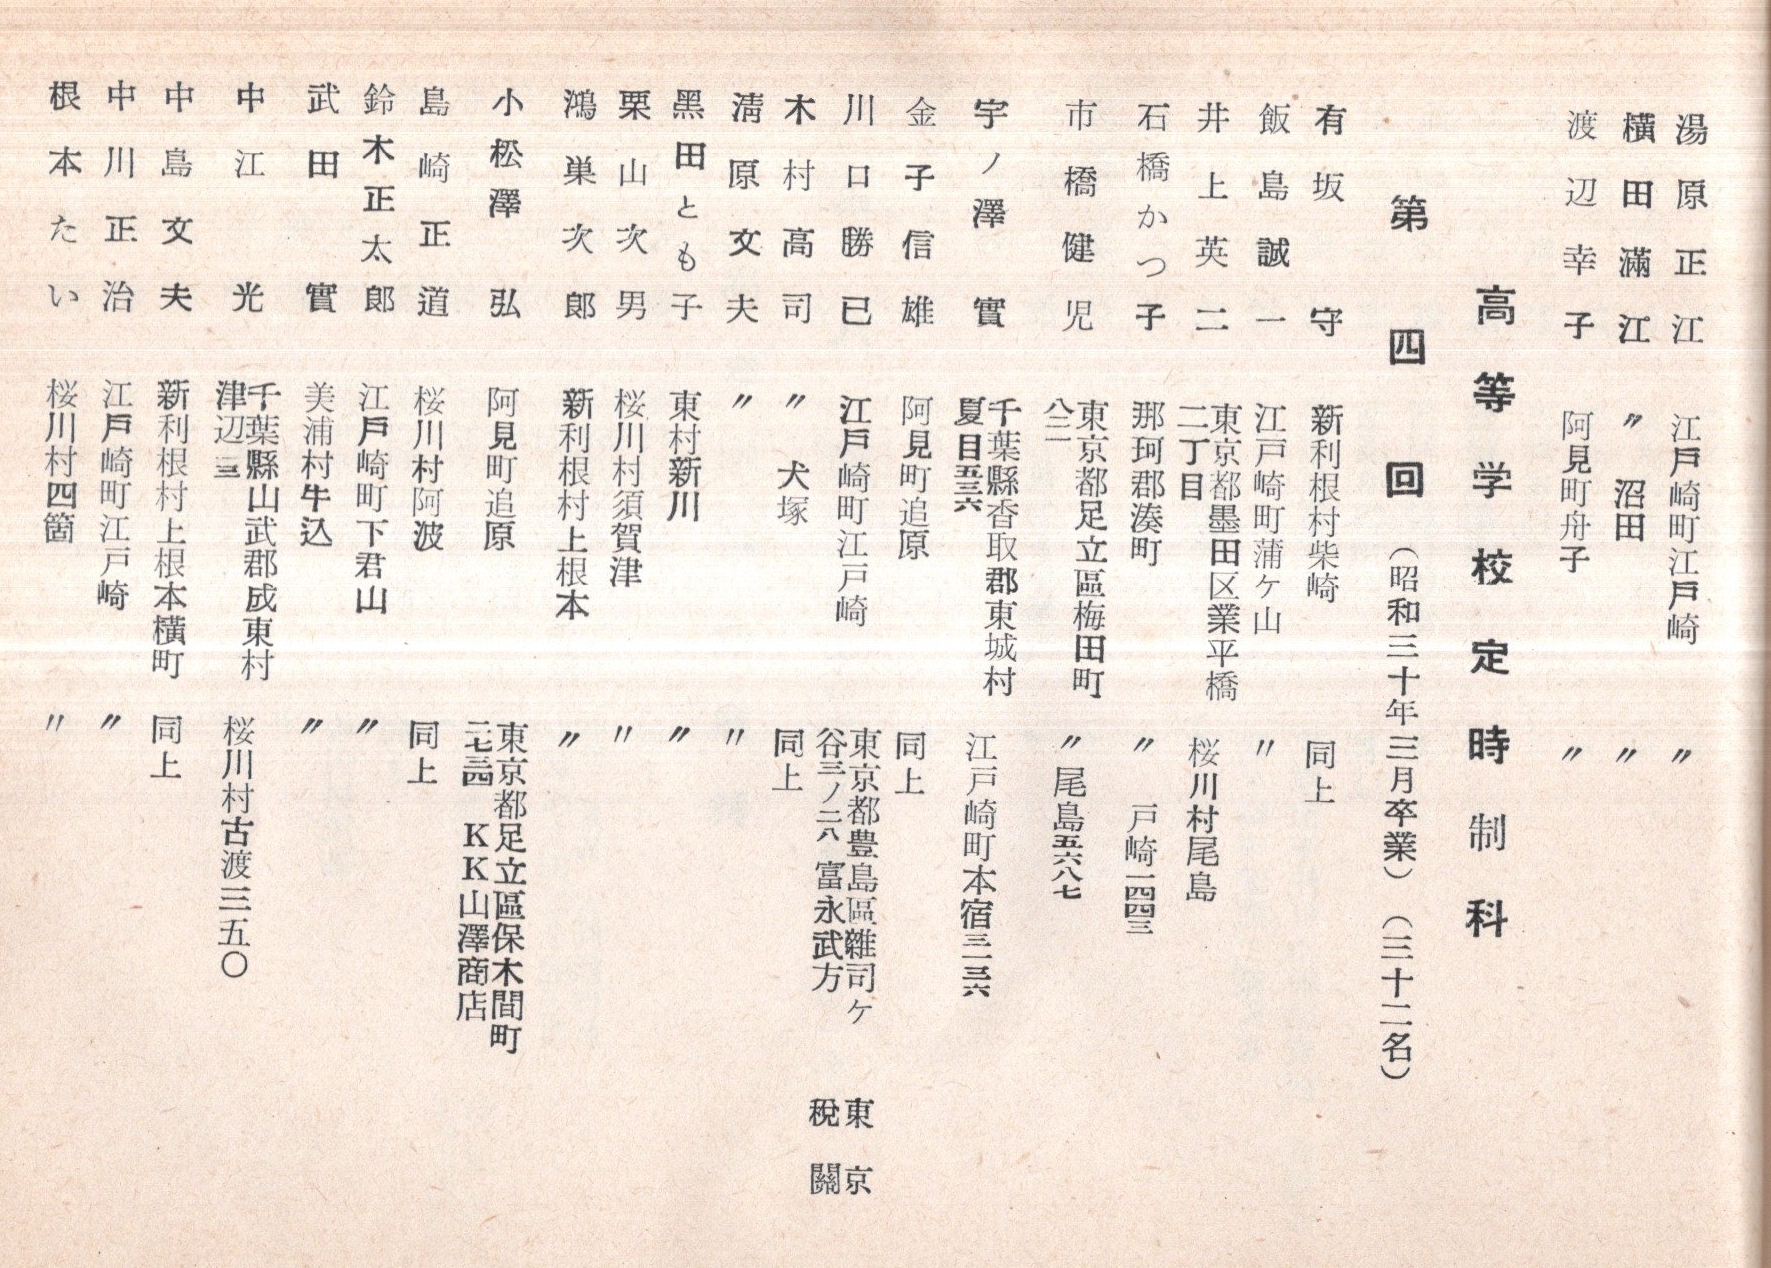 湯原正江　江戸崎町江戸崎　〃
横田滿江　〃　沼田　〃
渡辺幸子　阿見町舟子　〃
高等学校定時制科
第四回（昭和三十年三月卒業）（三十二名）
有坂守　新利根村柴崎　同上
飯島誠一　江戸崎町蒲ケ山　〃
井上英二　東京都墨田区業平橋二丁目　桜川村尾島
石橋かつ子　那珂郡湊町　〃　戸崎一四四三
市橋健児　東京都足立區梅田町八二　〃　尾島五六八七
宇ノ澤實　千葉縣香取郡東城村夏目五三六　江戸崎町本宿三一三六
金子信雄　阿見町追原　同上
川口勝已　江戸崎町江戸崎　東京都豊島區雜司ケ谷三ノ二八　富永武方　東京税關
木村高司　〃　犬塚　同上
淸原文夫　〃　〃
黑田とも子　東村新川　〃
栗山次男　桜川村須賀津　〃
鴻巣次郎　新利根村上根本　〃
小松澤弘　阿見町追原　東京都足立區保木間町二七四　KK山澤商店
島崎正道　桜川村阿波　同上
鈴木正太郎　江戸崎町下君山　〃
武田實　美浦村牛込　〃
中江光　千葉縣山武郡成東村津辺三　桜川村古渡三五〇
中島文夫　新利根村上根本横町　同上
中川正治　江戸崎町江戸崎　〃
根本たい　桜川村四箇　〃